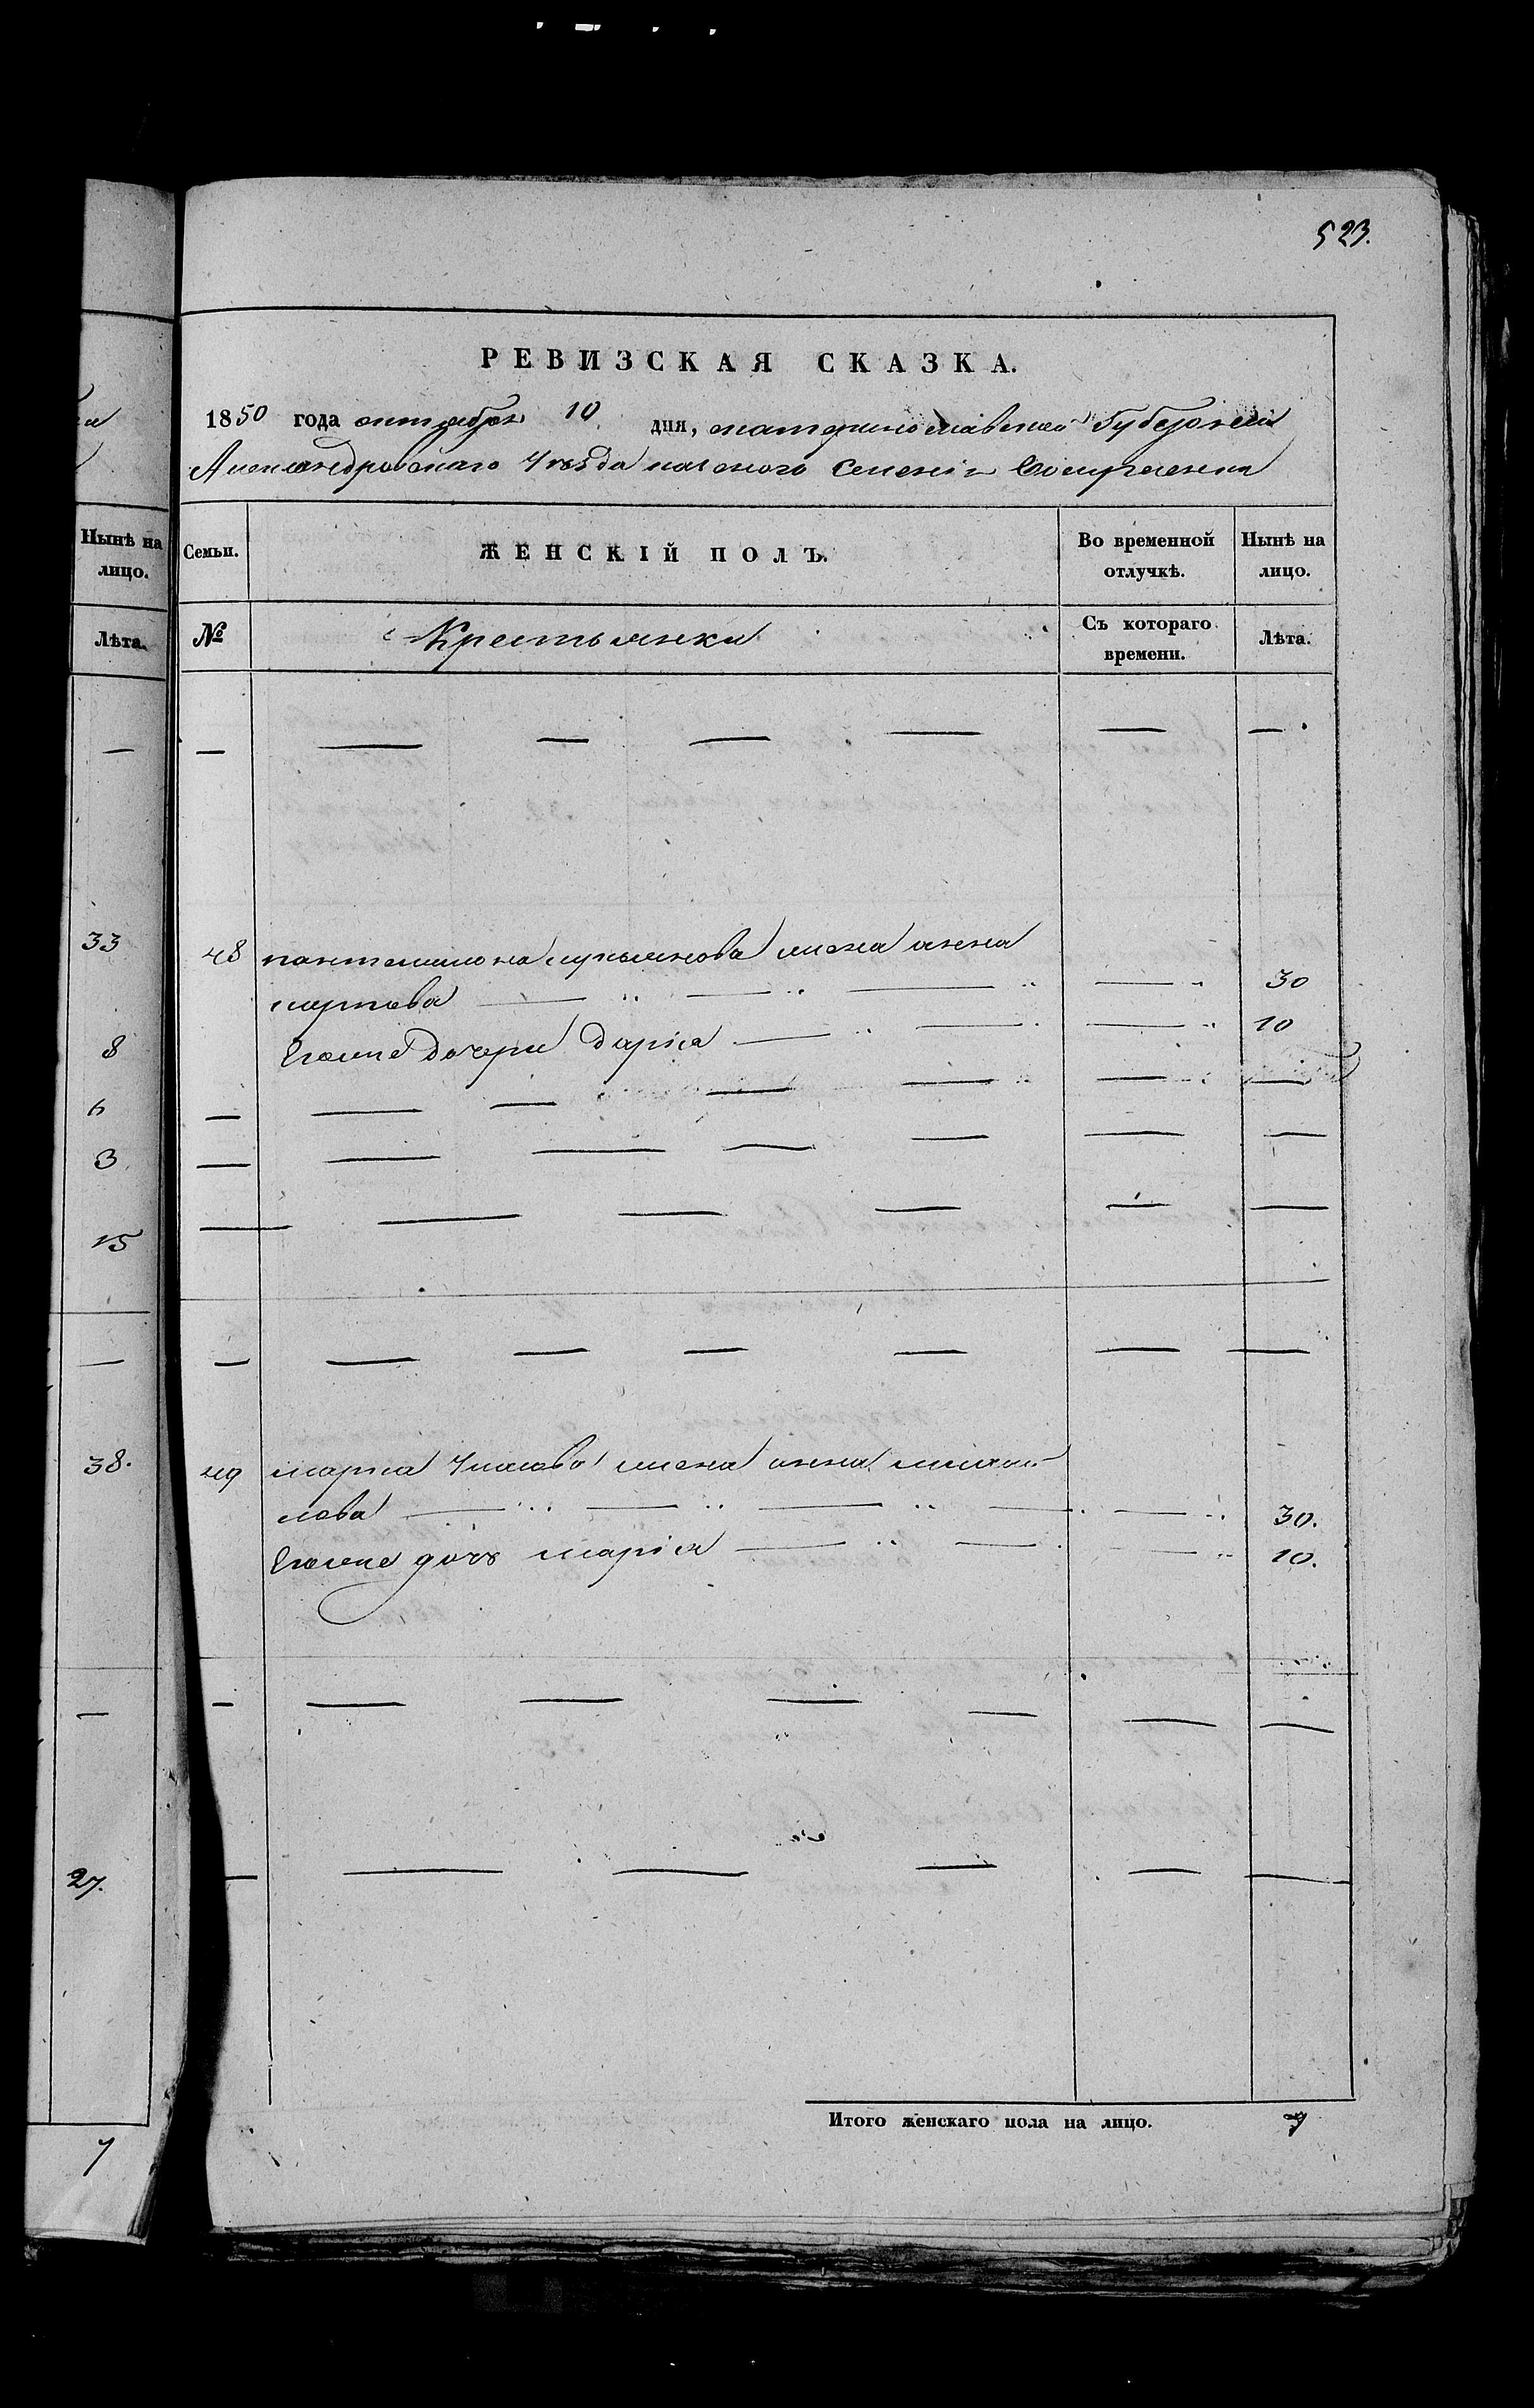 523.
РЕВИЗСКАЯ СКАЗКА.
1850 года октября 10 дня, екатеринославской губернии
Александровскаго уезда казенного селения
Нынѣ на лицо.
Семьи.
ЖЕНСКІЙ ПОЛЪ.
Во временной отлучкѣ.
Нынѣ на лицо.
Лѣта.
№
Крестьянки
Съ котораго времени.
Лѣта.
—
— — — — — — —
33
48 пантелимона лукьянова жена анна
карпова — „ — „ — „ — „ 30
8
Егоже дочери дарія — „ — „ — „ 10
6
— — — — — — —
3
— — — — — — —
15
— — — — — —
—
— — — — — — —
38.
49 марка жена анна михаи
лова — „ — „ — „ — — „ 30.
Егоже дочь марія — „ — — „ 10.
—
— — — — — — —
27.
— — — — — —
7
Итого женскаго пола на лицо.